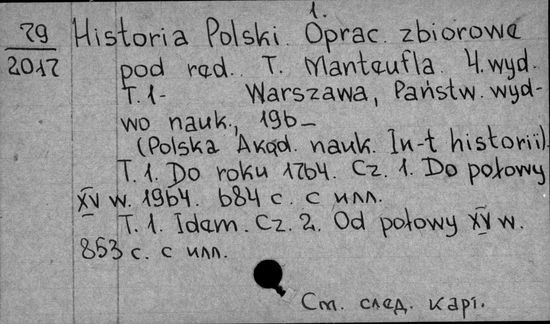 1.
29 Historia Polski. Oprac. zbiorowe
2017 pod red. T. Manteufla. 4. wyd.
T. 1- Warszawa, Państw. wyd-
wo nauk., 196_
(Polska Akad. nauk. In-t historii).
T. 1. Do roku 1764. Cz. 1. Do połowy
XV w. 1964. 684 с. с илл.
T. 1. Idem. Cz. 2. Od połowy XV w.
853 с. с илл.
См. след. карт.